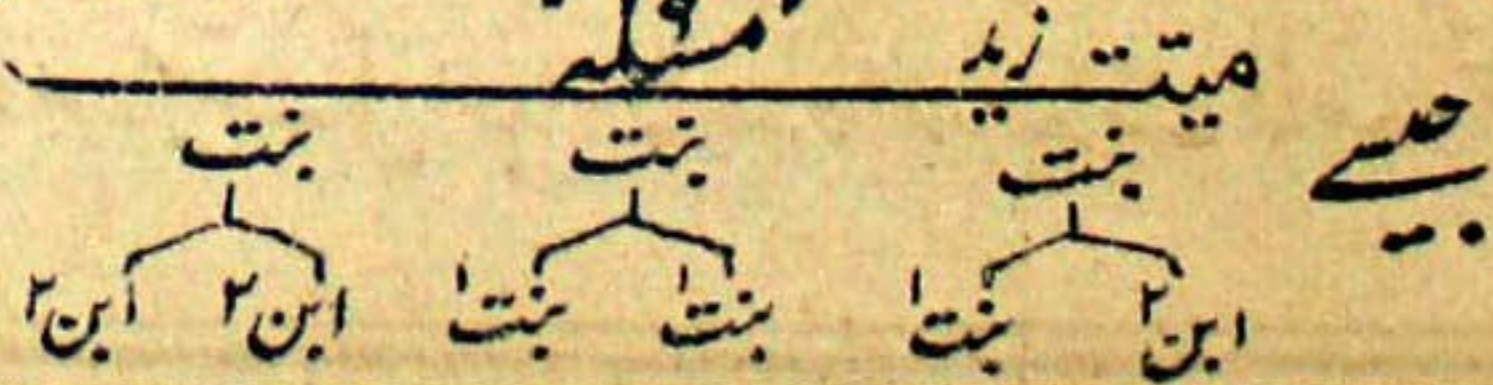 جیسے میّت زید مسئلہ ۹
بنت بنت بنت
ابن۲ بنت۱ بنت۱ بنت۱ ابن۲ ابن۲